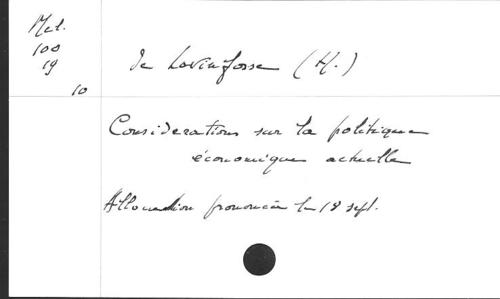 Mel.
100
19
10
de Lovinfosse (H.)
Considerations sur la politique
économique actuelle
Allocution prononcée le 18 sept.